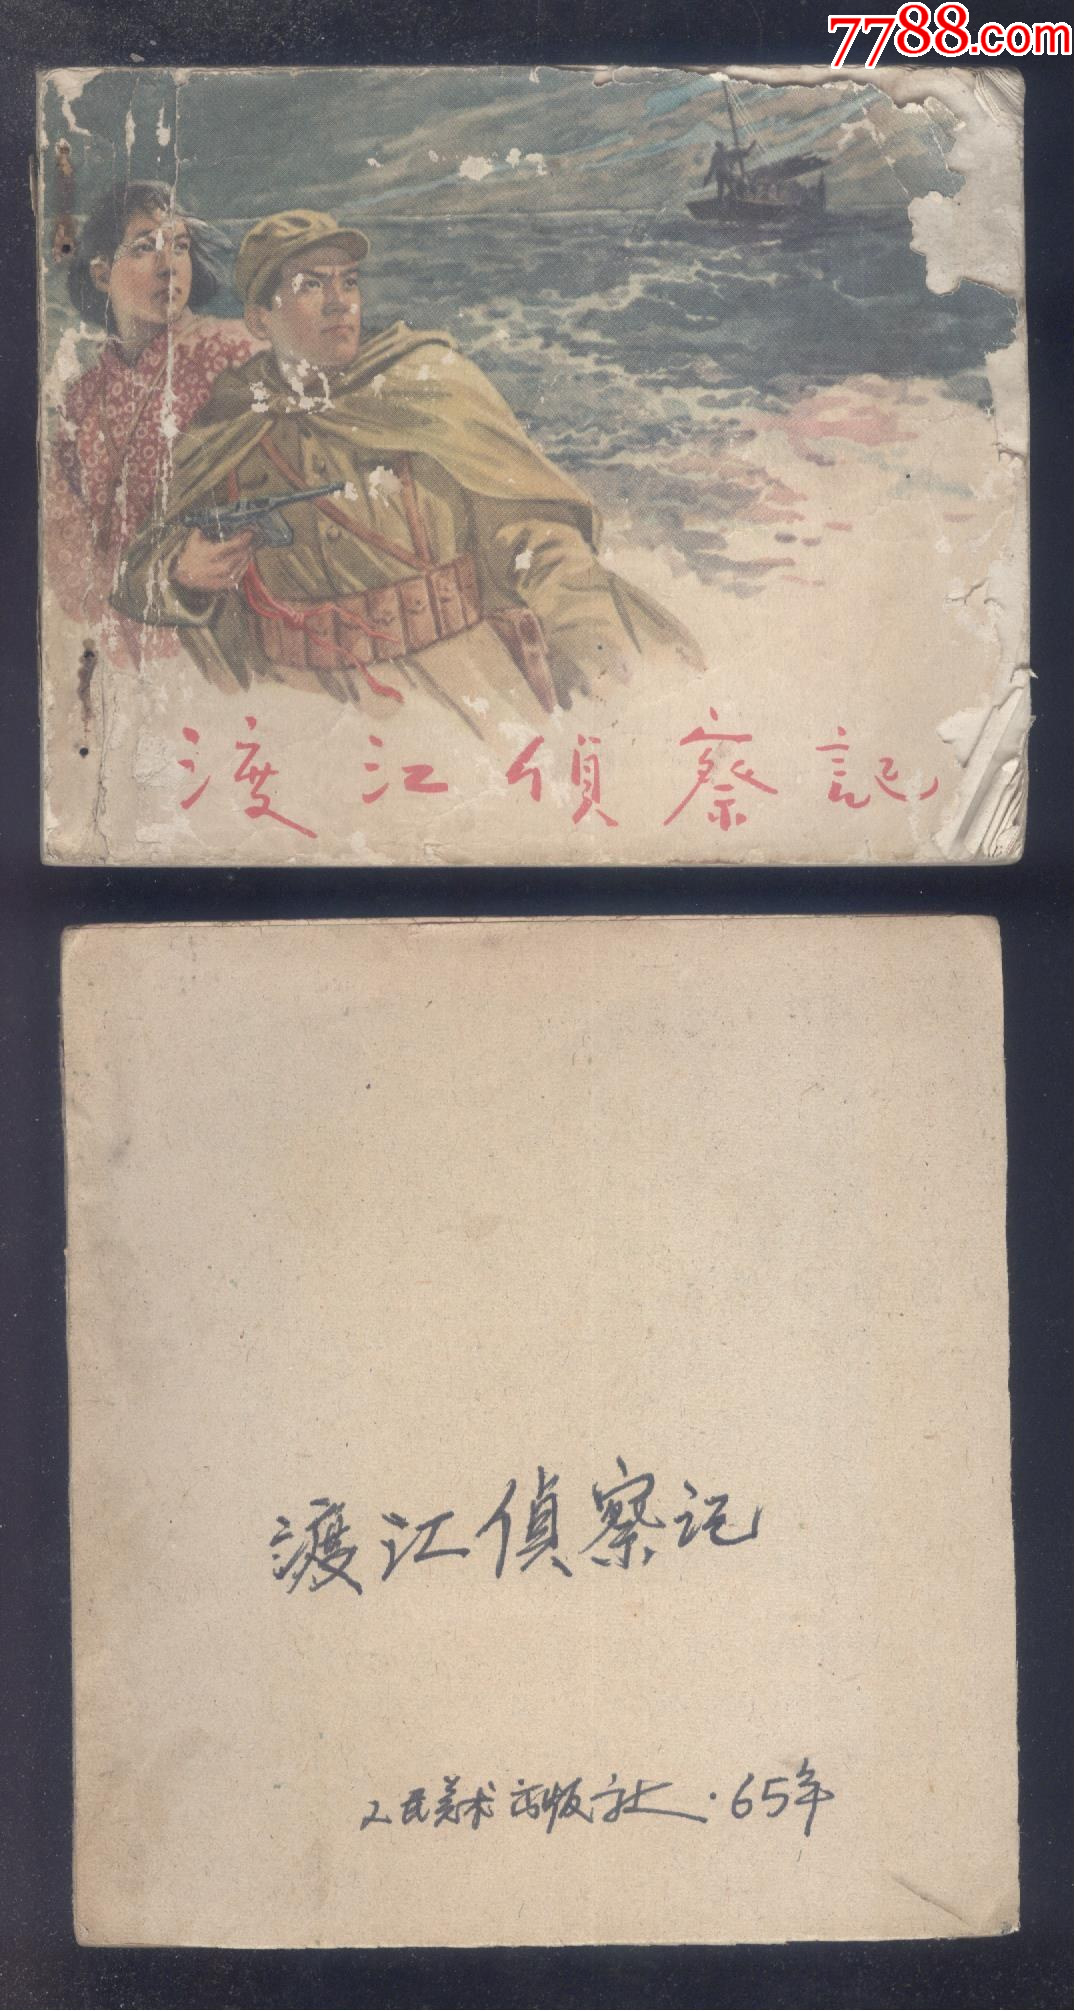 7788.com
渡江偵察記
渡江偵察记
人民美术出版社·65年